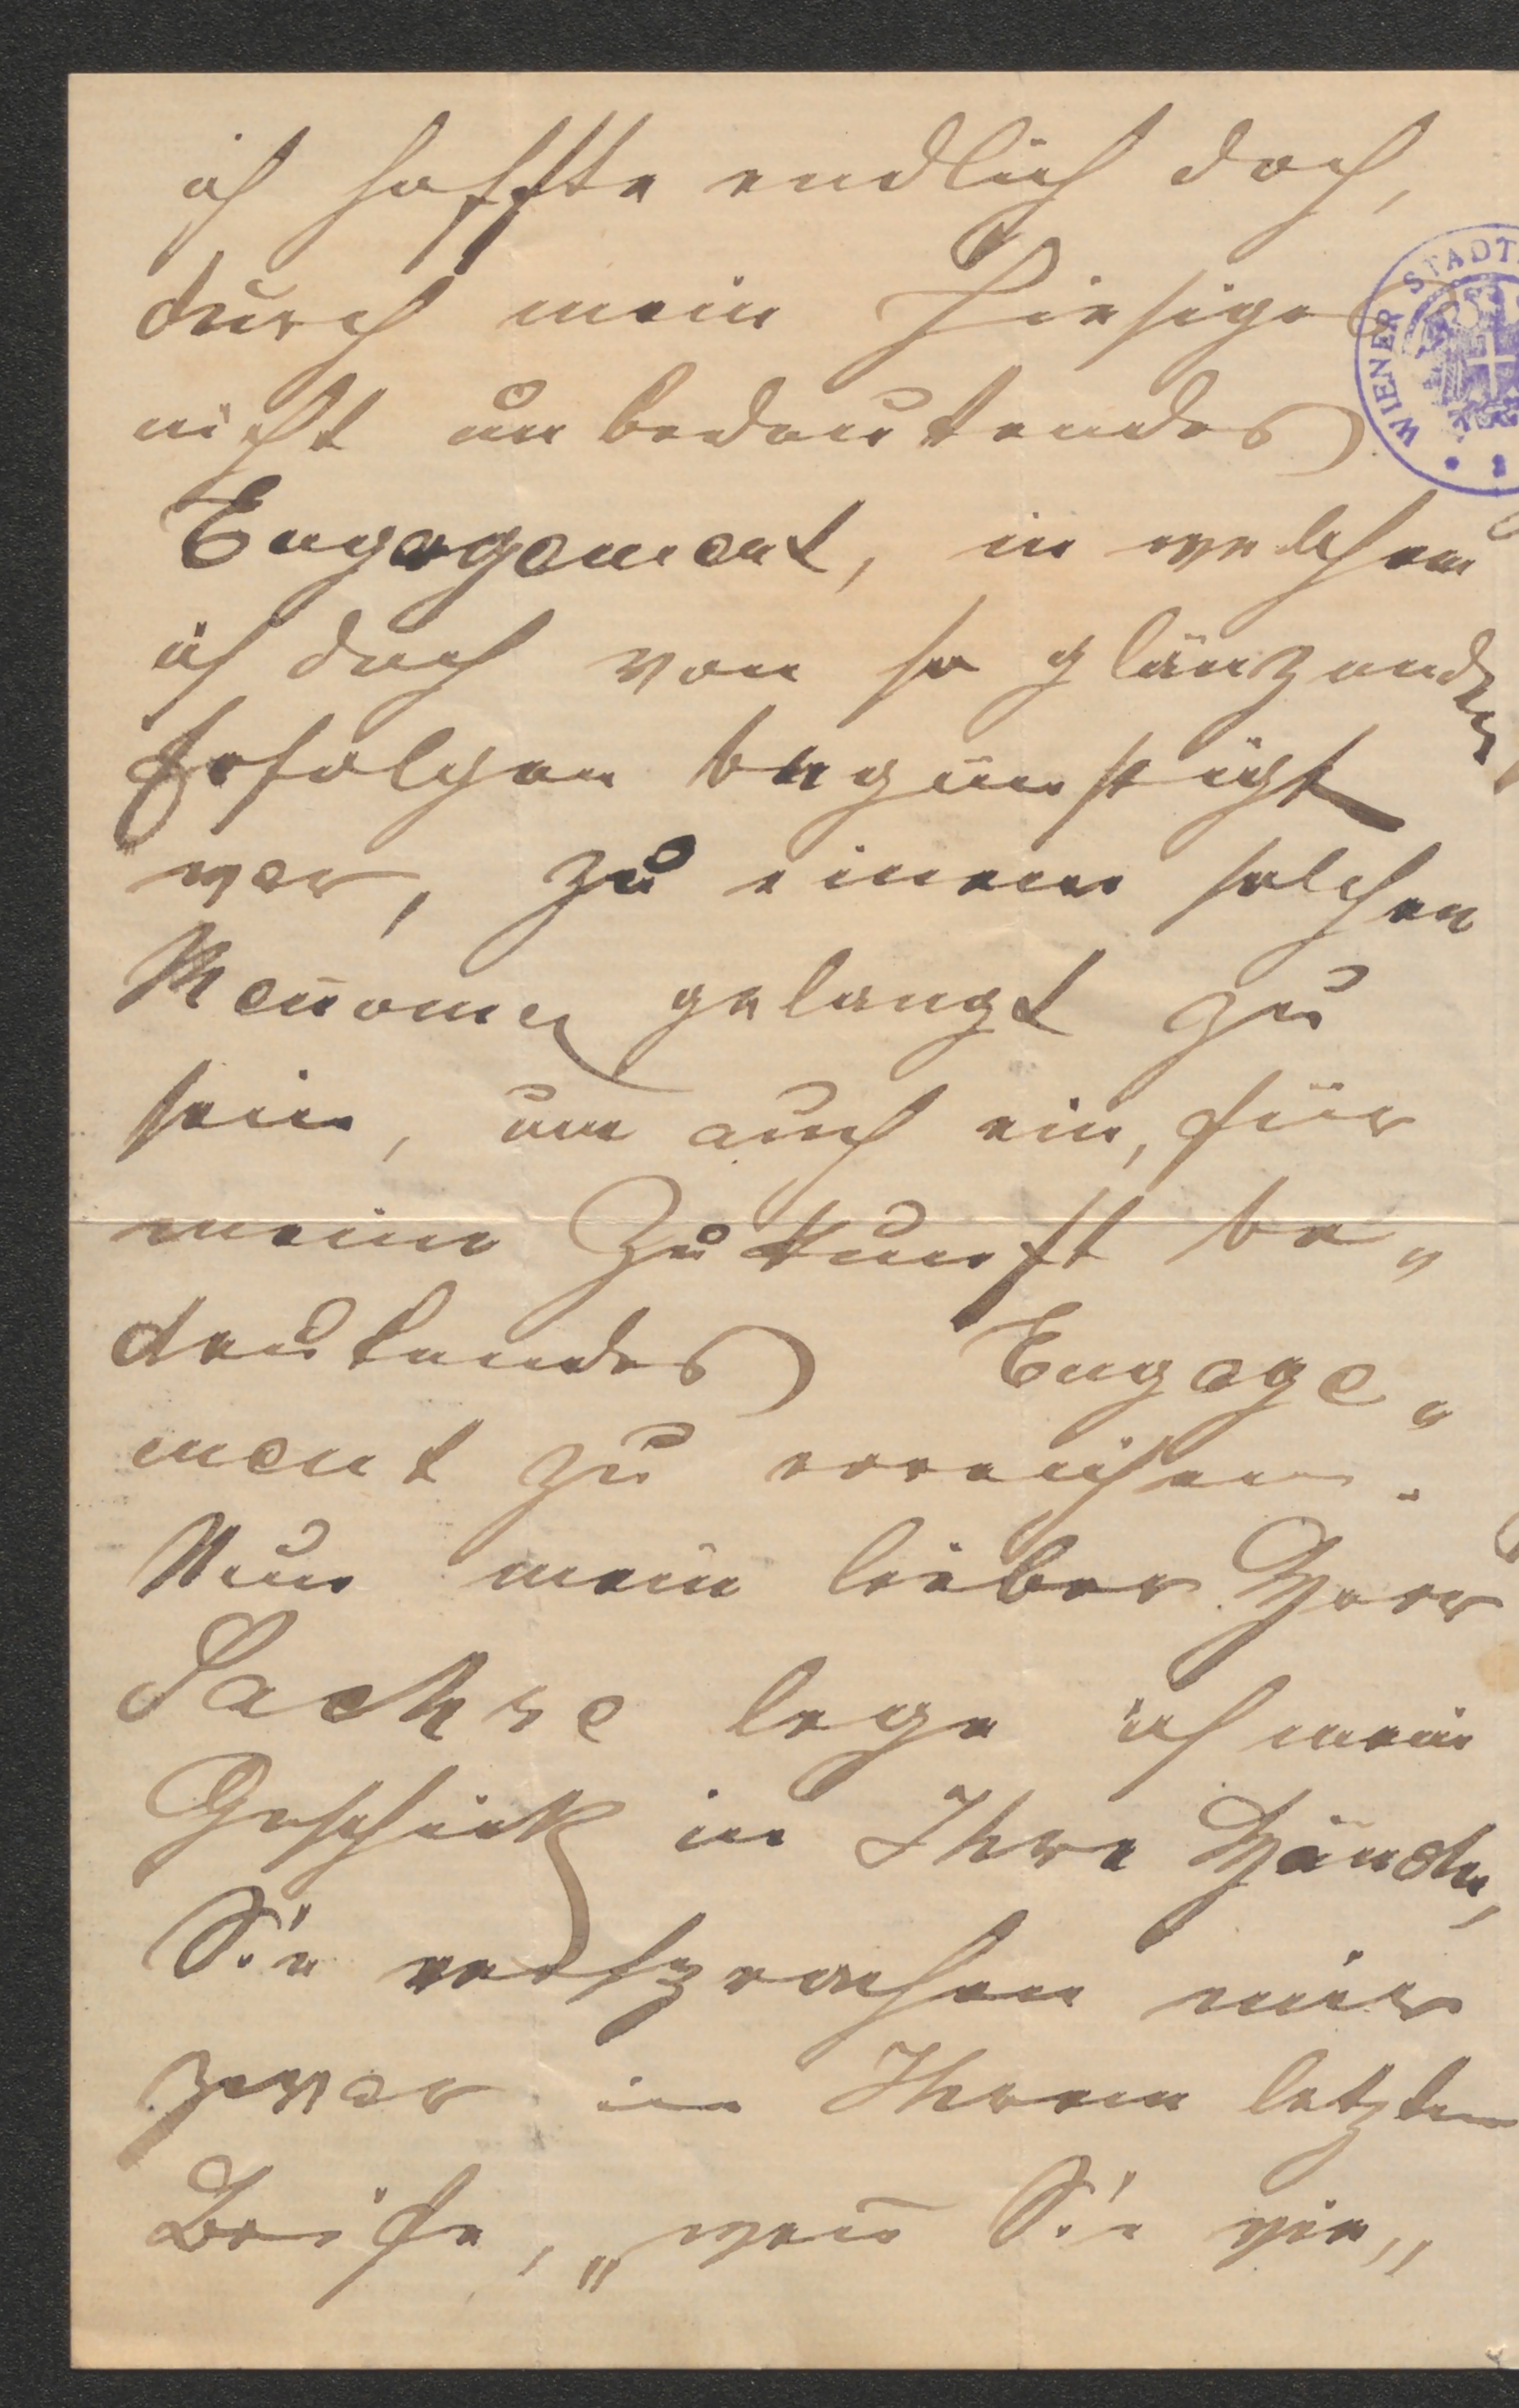 ich hoffte endlich doch,
durch mein hiesiges
nicht unbedeutendes
Engagement, in welchem
ich doch von so glänzenden
Erfolgen begünstigt
war, zu einem solchen
gelangt zu
sein, um auch ein, für
meine Zukunft be„
deutendes Engage„
ment zu erreichen.
Nun mein lieber Herr
Sachse lege ich mein
Geschick in Ihre Hände,
Sie versprachen mir
zwar in Ihrem letzten
Briefe, „wen̄ Sie
WIENER STADT